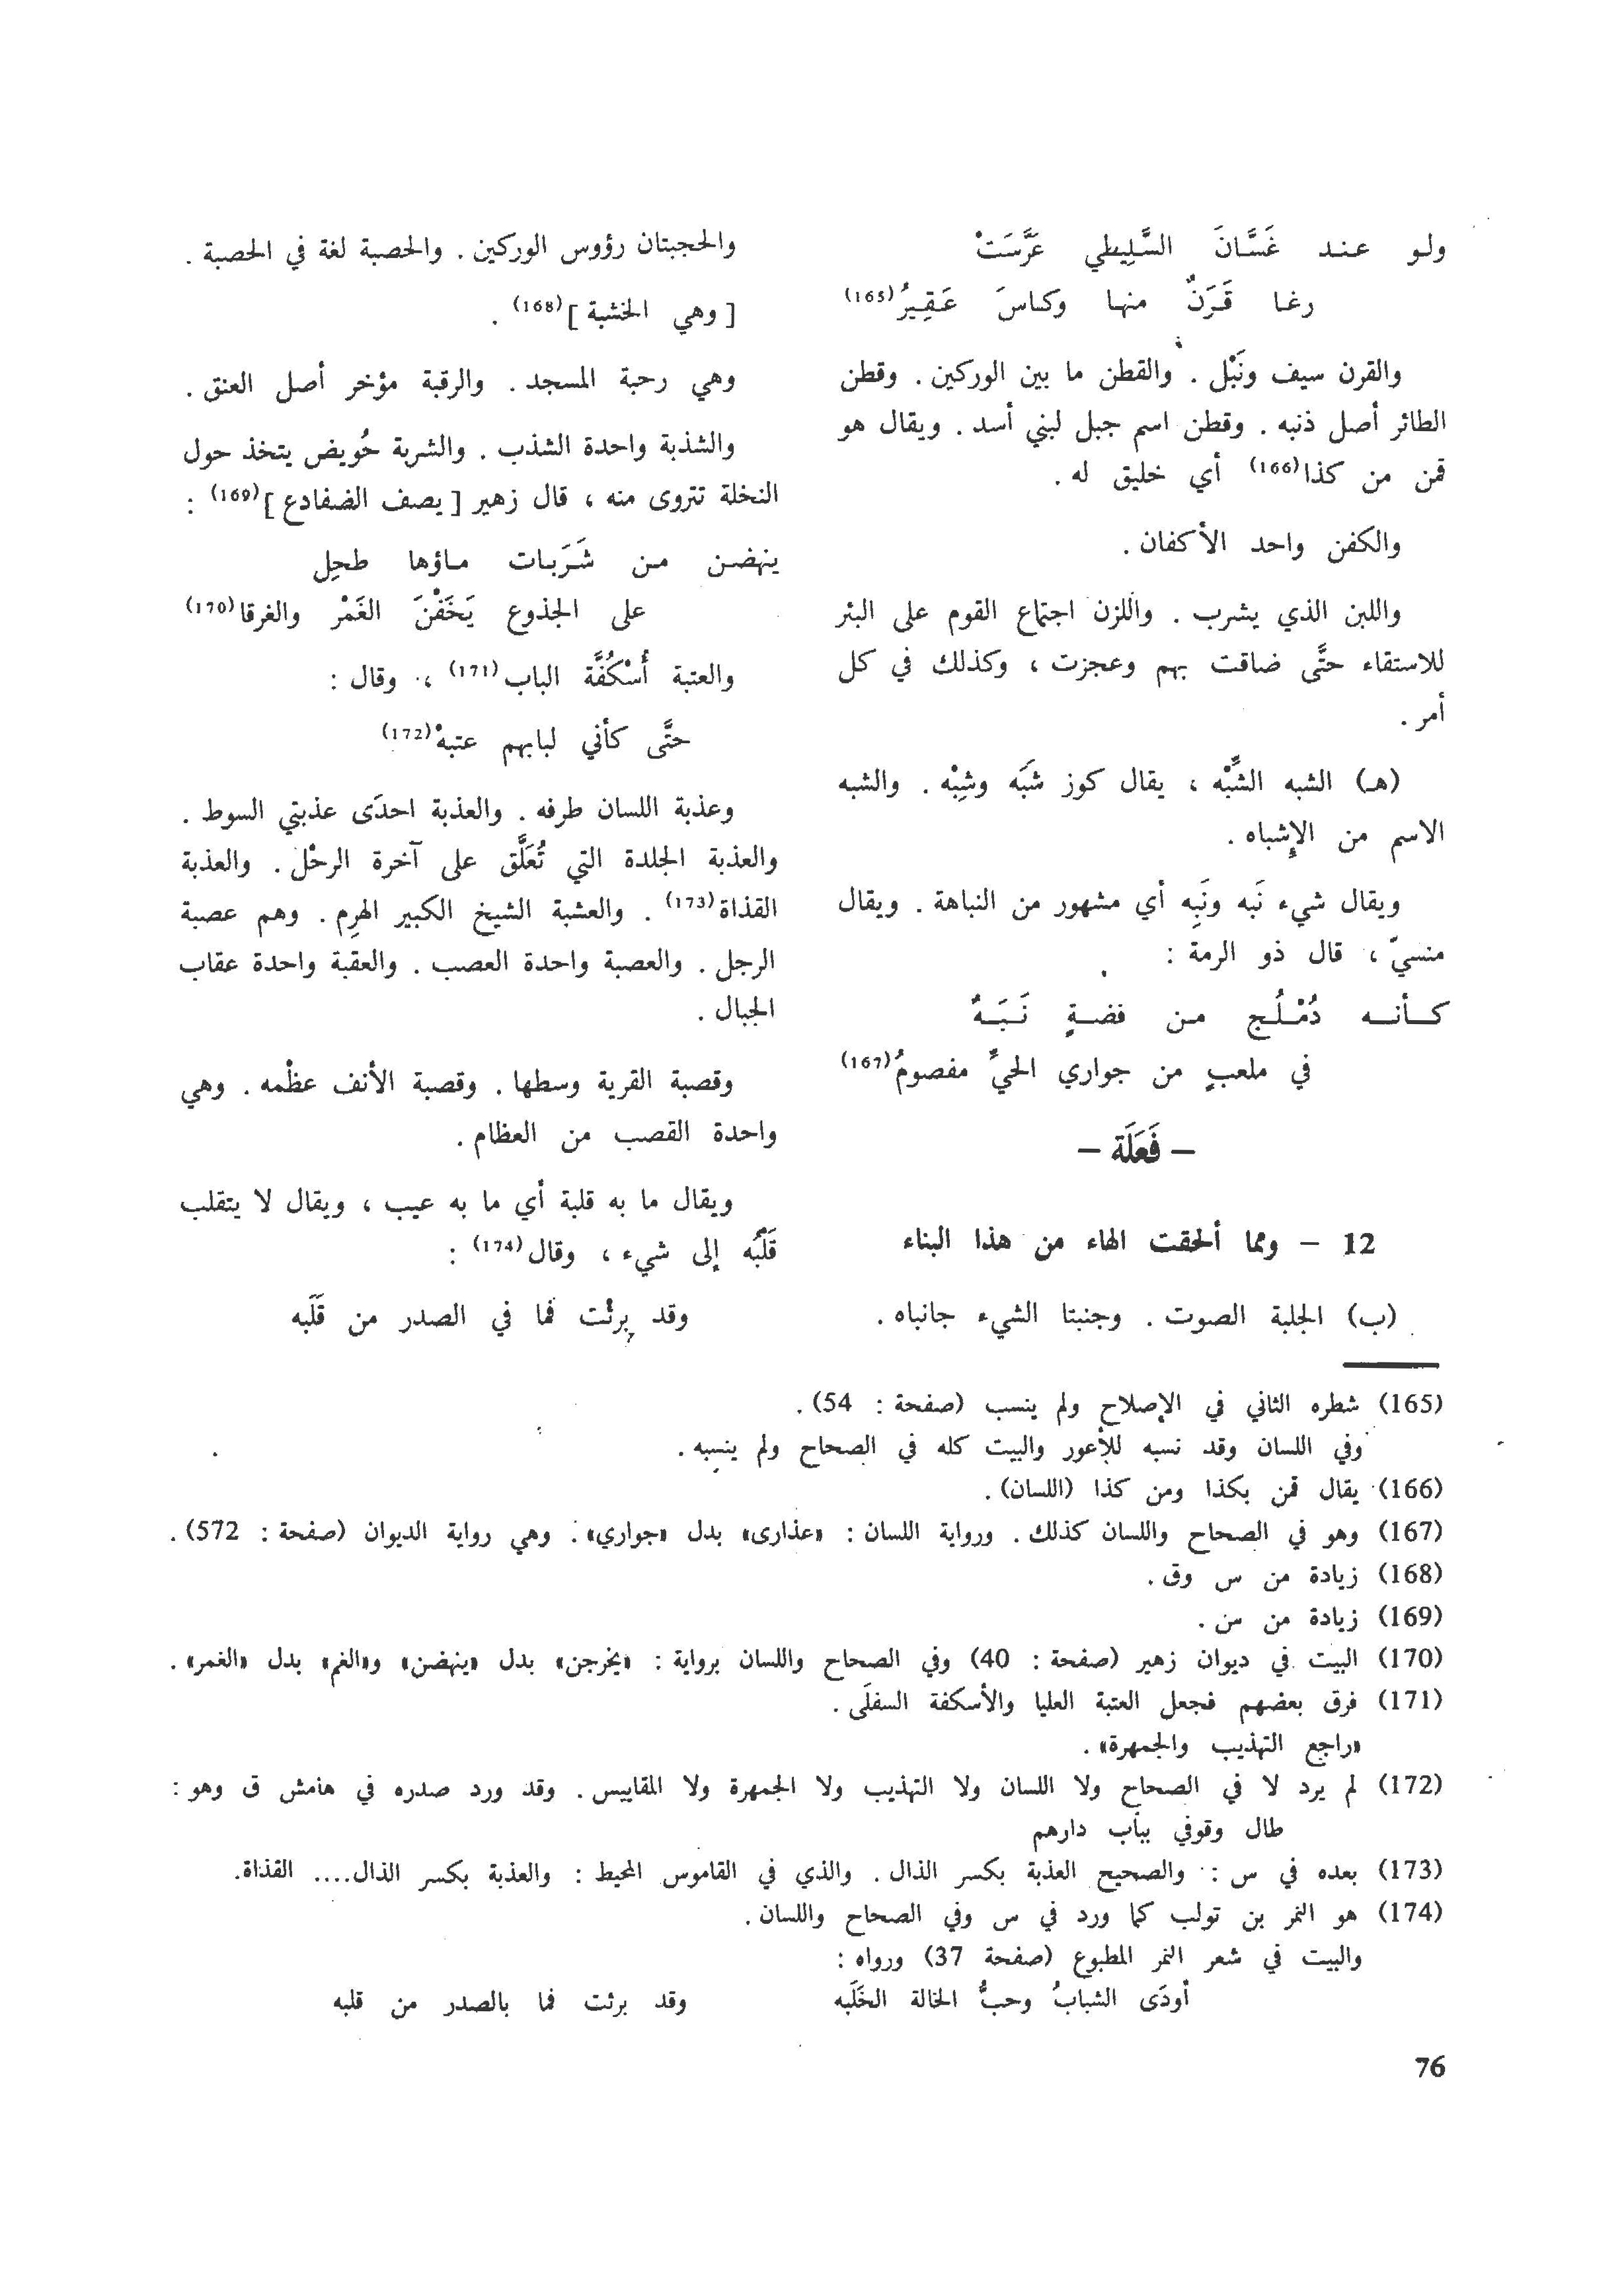 ولو عند غَسَّانَ السَّلِيطي عَرَّسَتْ
رغا قَرَنٌ منها وكاسَ عَقِيرُ(165)
والقرن سيف ونَبْل . والقطن ما بين الوركين . وقطن
الطائر أصل ذنبه . وقطن اسم جبل لبني أسد . ويقال هو
قمن من كذا(166) أي خليق له .
والكفن واحد الأكفان .
واللبن الذي يشرب . واللزن اجتماع القوم على البئر
للاستقاء حتَّى ضاقت بهم وعجزت ، وكذلك في كل
أمر .
(هـ) الشبه الشَّبْه ، يقال كوز شَبَه وشِبْه . والشبه
الاسم من الإشباه .
ويقال شيء نَبه ونَبِه أي مشهور من النباهة . ويقال
منسيّ ، قال ذو الرمة :
كأنه دُمْلُج من فضةٍ نَبَهٌ
في ملعبٍ من جواري الحيِّ مفصومُ(167)
– فَعَلَة –
12 – ومما ألحقت الهاء من هذا البناء
(ب) الجلبة الصوت . وجنبتا الشيء جانباه .
والحجبتان رؤوس الوركين . والحصبة لغة في الحصبة .
[ وهي الخشبة ](168) .
وهي رحبة المسجد . والرقبة مؤخر أصل العنق .
والشذبة واحدة الشذب . والشربة حُويض يتخذ حول
النخلة تتروى منه ، قال زهير [ يصف الضفادع ](169) :
ينهضن من شَرَبات ماؤها طحِل
على الجذوع يَخَفْنَ الغَمْر والغرقا(170)
والعتبة أُسْكُفَّة الباب(171) ، وقال :
حتَّى كأني لبابهم عتبهْ(172)
وعذبة اللسان طرفه . والعذبة احدَى عذبتي السوط .
والعذبة الجلدة التي تُعَلَّق على آخرة الرحْل . والعذبة
القذاة(173) . والعشبة الشيخ الكبير الهرِم . وهم عصبة
الرجل . والعصبة واحدة العصب . والعقبة واحدة عقاب
الجبال .
وقصبة القرية وسطها . وقصبة الأنف عظْمه . وهي
واحدة القصب من العظام .
ويقال ما به قلبة أي ما به عيب ، ويقال لا يتقلب
قَلْبُه إلى شيء ، وقال(174) :
وقد برئْت فما في الصدر من قَلَبه
(165) شطره الثاني في الإصلاح ولم ينسب (صفحة : 54) .
وفي اللسان وقد نسبه للأعور والبيت كله في الصحاح ولم ينسبه .
(166) يقال قمن بكذا ومن كذا (اللسان) .
(167) وهو في الصحاح واللسان كذلك . ورواية اللسان : «عذارى» بدل «جواري» . وهي رواية الديوان (صفحة : 572) .
(168) زيادة من س وق .
(169) زيادة من س .
(170) البيت في ديوان زهير (صفحة : 40) وفي الصحاح واللسان برواية : «يخرجن» بدل «ينهضن» و«الغم» بدل «الغمر» .
(171) فرق بعضهم فجعل العتبة العليا والأسكفة السفلَى .
«راجع التهذيب والجمهرة» .
(172) لم يرد لا في الصحاح ولا اللسان ولا التهذيب ولا الجمهرة ولا المقاييس . وقد ورد صدره في هامش ق وهو :
طال وقوفي بباب دارهم
(173) بعده في س : والصحيح العذبة بكسر الذال . والذي في القاموس المحيط : والعذبة بكسر الذال.... القذاة.
(174) هو النمر بن تولب كما ورد في س وفي الصحاح واللسان .
والبيت في شعر النمر المطبوع (صفحة 37) ورواه :
أودَى الشبابُ وحبُّ الخالة الخَلَبه وقد برئت فما بالصدر من قلبه
76